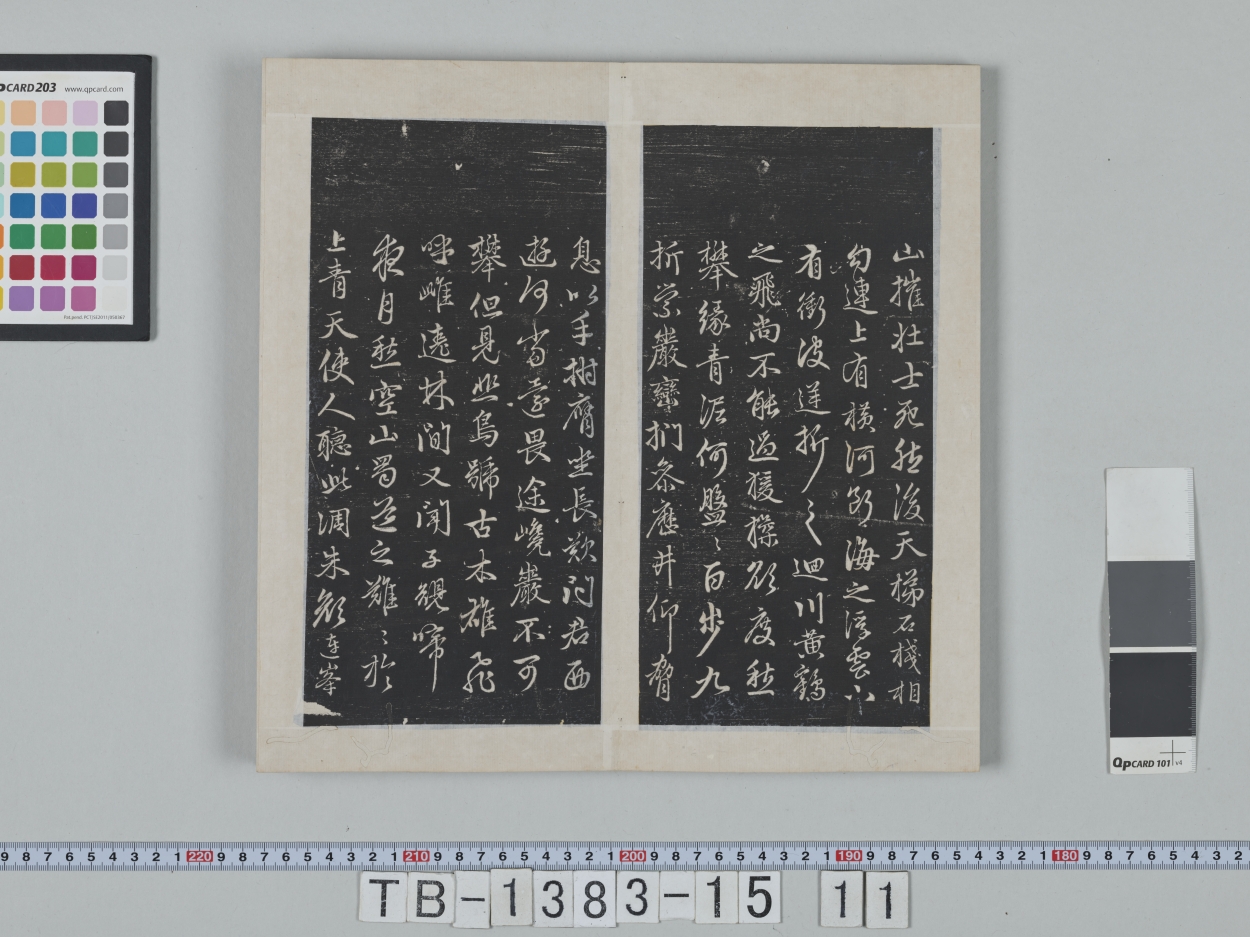 山摧壯士死然後天梯石棧相
勾連上有橫河斷海之浮雲下
有衝波逆折之迴川黃鶴
之飛尚不能過猨猱欲度愁
攀緣青泥何盤〻百步九
折縈巖巒捫參歷井仰脅
息以手拊膺坐長歎問君西
遊何當還畏途巉巖不可
攀但見悲鳥號古木雄飛
呼雌遶林間又聞子規啼
夜月愁空山蜀道之難〻於
上青天使人聽此凋朱顏連峯
CARD 203 www.qpcard.com
QPCARD 101 v4
9 8 7 6 5 4 3 2 1 220 9 8 7 6 5 4 3 2 1 210 9 8 7 6 5 4 3 2 1 200 9 8 7 6 5 4 3 2 1 190 9 8 7 6 5 4 3 2 1 180 9 8 7 6 5 4 3 2
TB-1383-15 11